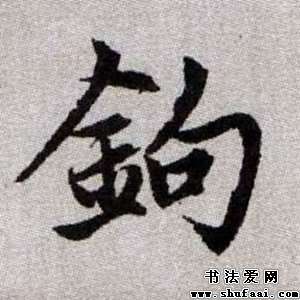 鉤
书法爱网
www.shufaai.com